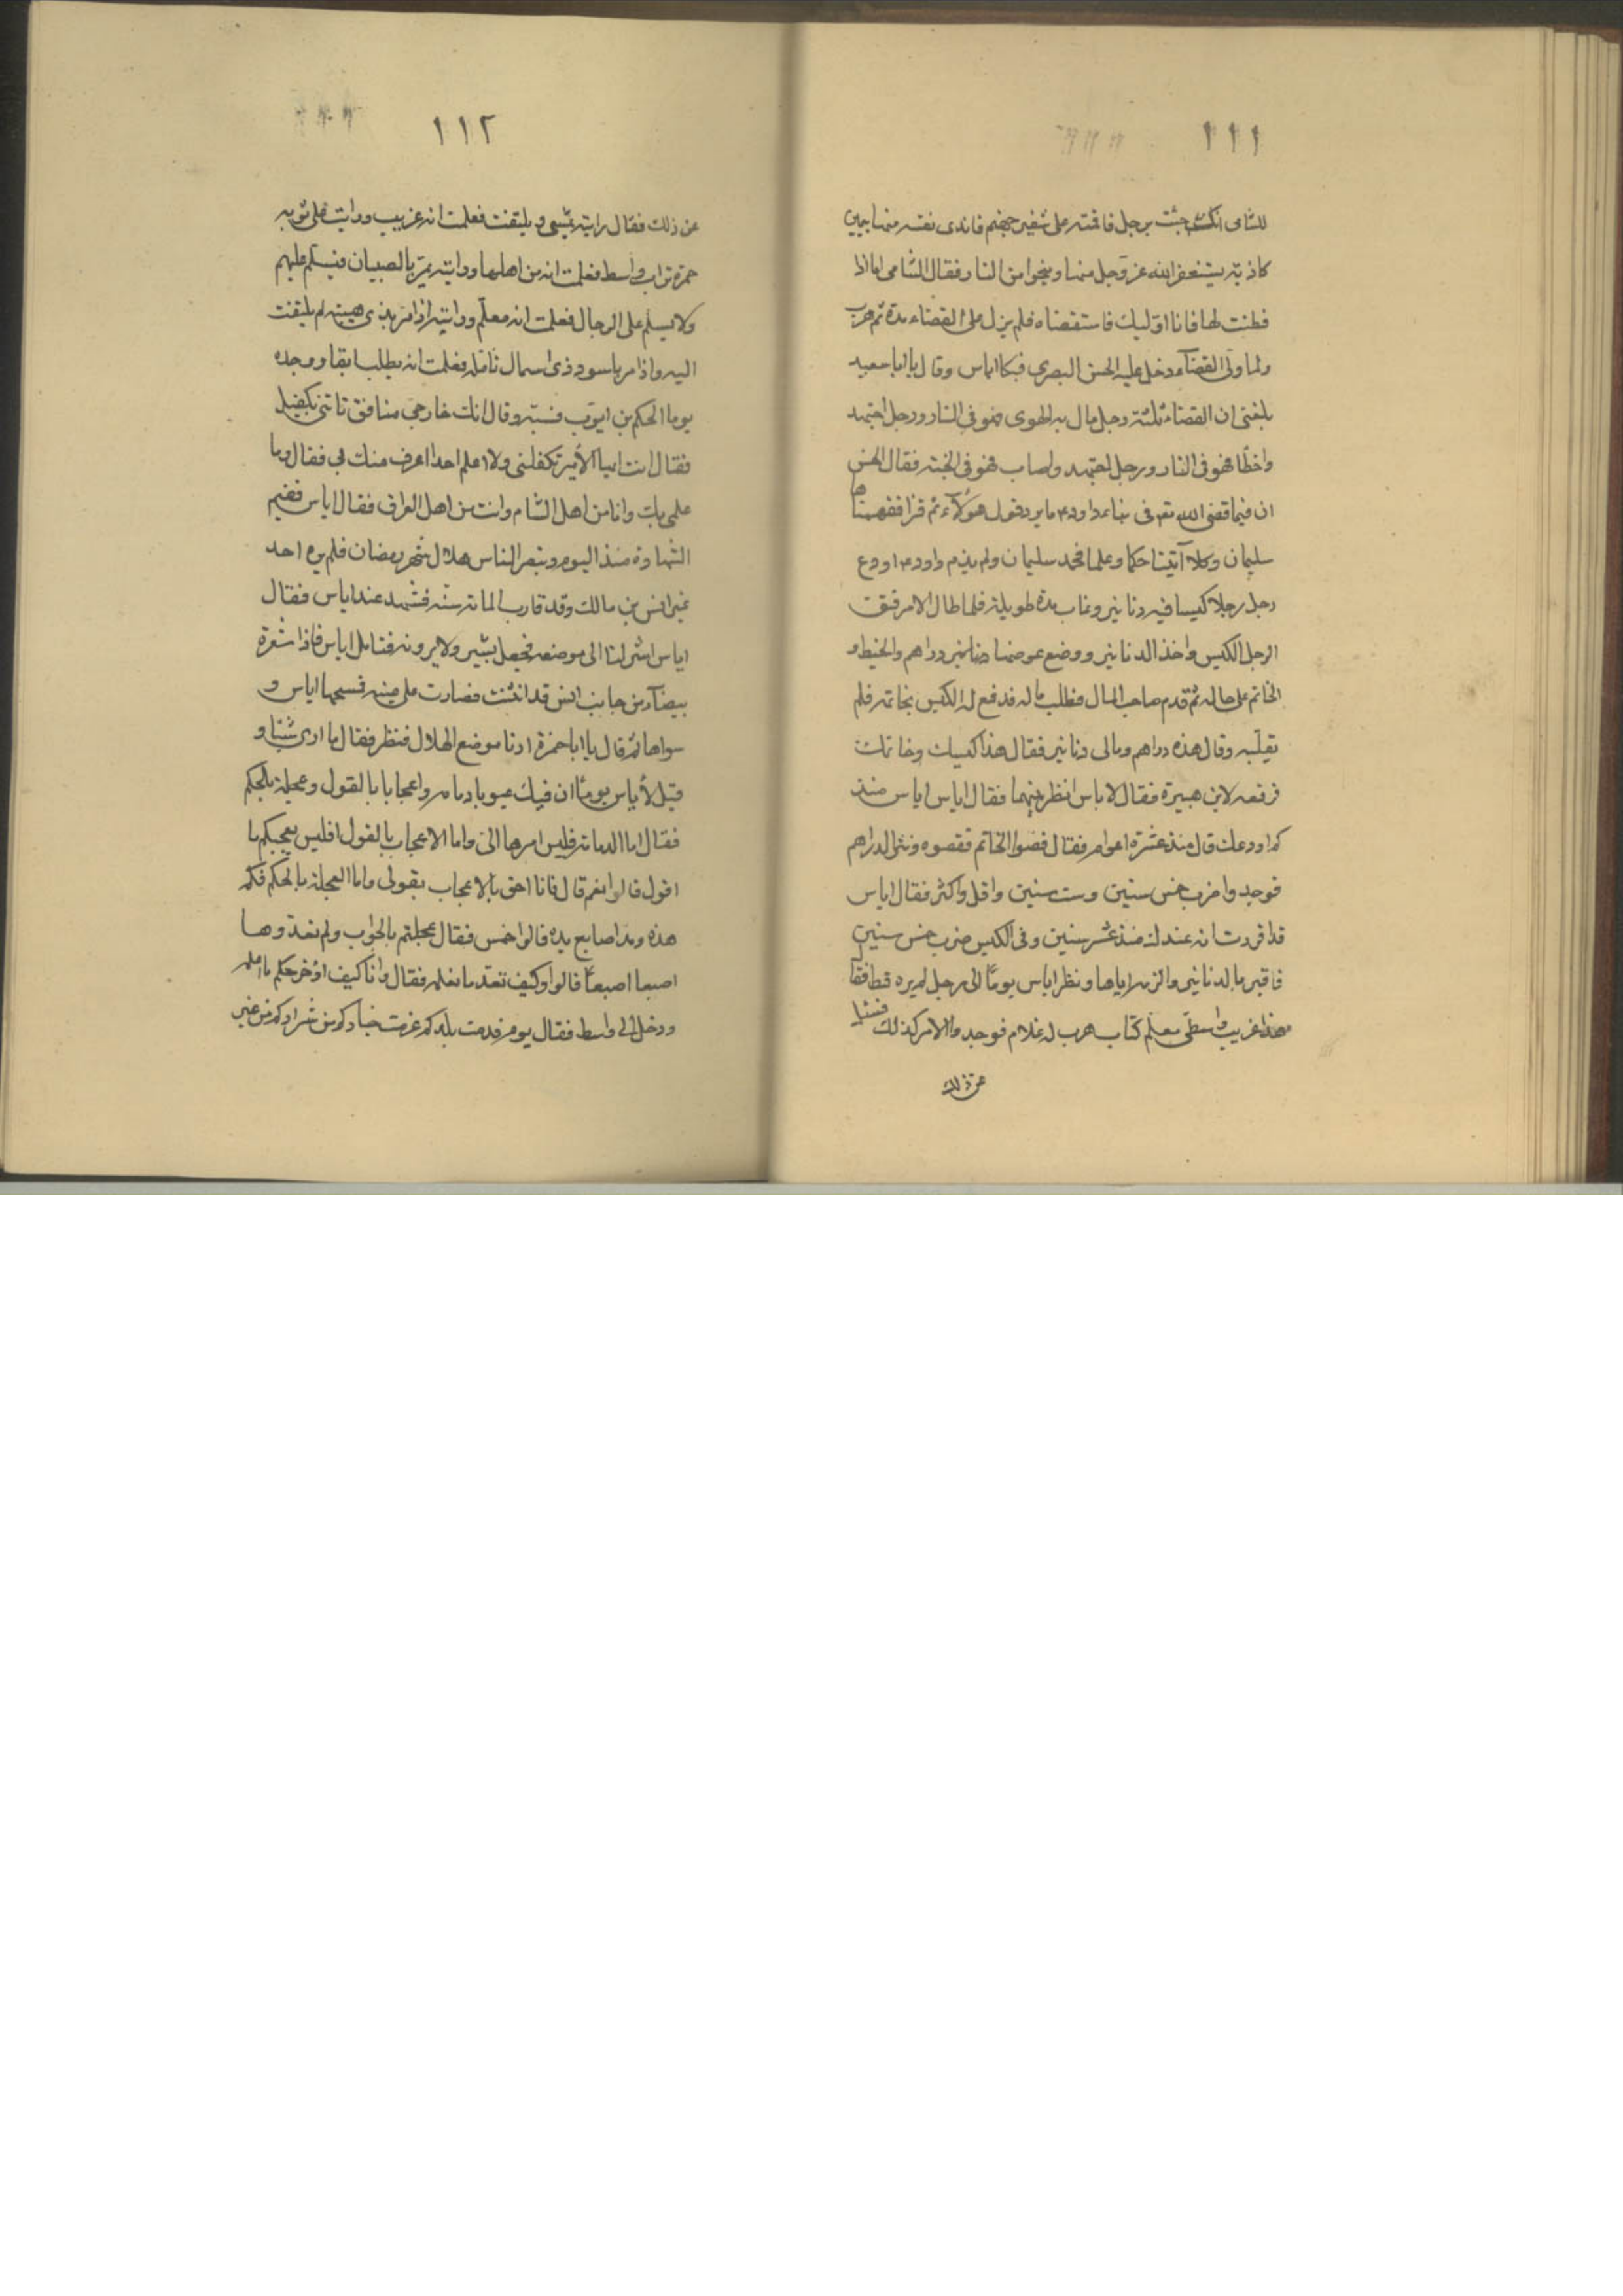 ١١١
للشامى انك جئت برجل فاقمته على شفير جهنم فافتدى نفسه منها بيمين
كاذبة يستغفر الله عز وجل منها وينجوا من النار فقال الشامى اما اذا
فطنت لها فانا اوليك فاستقضاه فلم يزل على القضاء مدة ثم هرب
ولما ولى القضآء دخل عليه الحسن البصرى فبكا اياس وقال يا ابا سعيد
بلغنى ان القضاء ثلثة رجل مال به الهوى فهو فى النار ورجل اجتهد
واخطأ فهو فى النار ورجل اجتهد واصاب فهو فى الجنة فقال الحسن
ان فيما قضى الله تعه فى نباء داود ما يرد قول هؤلآء ثم قرا ففهمناها
سليمان وكلا آتينا حكما وعلما فحمد سليمان ولم يذم داود اودع
رجل رجلا كيسا فيه دنانير وغاب مدة طويلة فلما طال الامر فتق
الرجل الكيس واخذ الدنانير ووضع عوضها دراهم والخيط و
الخاتم على حاله ثم قدم صاحب المال فطلب ماله فدفع له الكيس بخاتمه فلم
يقلبه وقال هذه دراهم ومالى دنانير فقال هذا كيسك وخاتمك
فرفعه لابن هبيرة فقال لاياس انظر بينهما فقال اياس منذ
كم اودعك قال منذ عشرة اعوام فقال فضوا الخاتم ففضوه ونثر الدراهم
فوجدوا ضرب خمس سنين وست سنين واقل واكثر فقال اياس
قد اقررت انه عندك منذ عشر سنين وفى الكيس ضرب خمس سنين
فاقر بالدنانير والزمه اياها ونظر اياس يوماً الى رجل لم يره قط فقا
هذا غريب واسطى معلم كتاب هرب له غلام فوجدوا الامر كذلك فسئل
عن ذلك
١١٢
عن ذلك فقال رايته يمشى ويلتفت فعلمت انه غريب ورايت على ثوبه
حمرة تراب واسط فعلمت انه من اهلها ورايته يمر بالصبيان فيسلم عليهم
ولا يسلم على الرجال فعلمت انه معلم ورايته اذا مر بذى هيبة لم يلتفت
اليه واذا مر باسود ذى اسمال تأمله فعلمت انه يطلب ابقا ووجده
يوما الحكم بن ايوب فسبه وقال انك خارجى منافق تاتنى بكفيل
فقال انت ايها الأمير تكفلنى ولا اعلم احدا اعرف منك بى فقال وما
علمى بك وانا من اهل الشام وانت من اهل العراق فقال اياس ففيم
الشهادة منذ اليوم وتبصر الناس هلال شهر رمضان فلم يره احد
غير انس بن مالك وقد قارب الماته سنة فشهد عند اياس فقال
اياس اشر لنا الى موضعه فجعل يشير ولا يرونه فتامل اياس فاذا شعرة
بيضآء من حاجب انس قد انثنت فصارت على عينه فمسحها اياس و
سواها ثم قال يا ابا حمزة ارنا موضع الهلال فنظر فقال ما ارى شيئا و
قيل لأياس يوماً ان فيك عيوبا دمامه واعجابا بالقول وعجلة بالحكم
فقال اما الدمامة فليس امرها الى واما الاعجاب بالقول افليس يعجبكم ما
اقول قالوا نعم قال فانا احق بالاعجاب بقولى واما العجلة بالحكم فكم
هذه ومد اصابع يده قالوا خمس فقال عجلتم بالجواب ولم تعدوها
اصبعا اصبعاً قالوا وكيف نعد ما نعلم فقال وانا كيف اؤخر حكم ما اعلم
ودخل الى واسط فقال يوم قدمت بلدكم عرفت خياركم من شراركم من غير